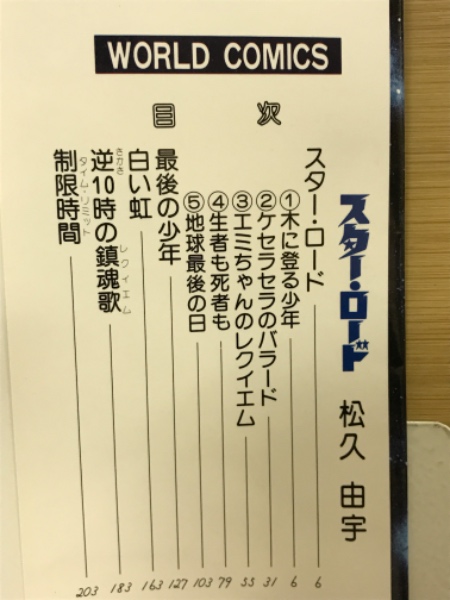 WORLD COMICS
目次
スター・ロード 松久由宇
スター・ロード 6
①木に登る少年 6
②ケセラセラのバラード 31
③エミちゃんのレクイエム 55
④生者も死者も 79
⑤地球最後の日 103
最後の少年 127
白い虹 163
逆10時の鎮魂歌 183
さかさ
レクイエム
制限時間 203
タイム・リミット